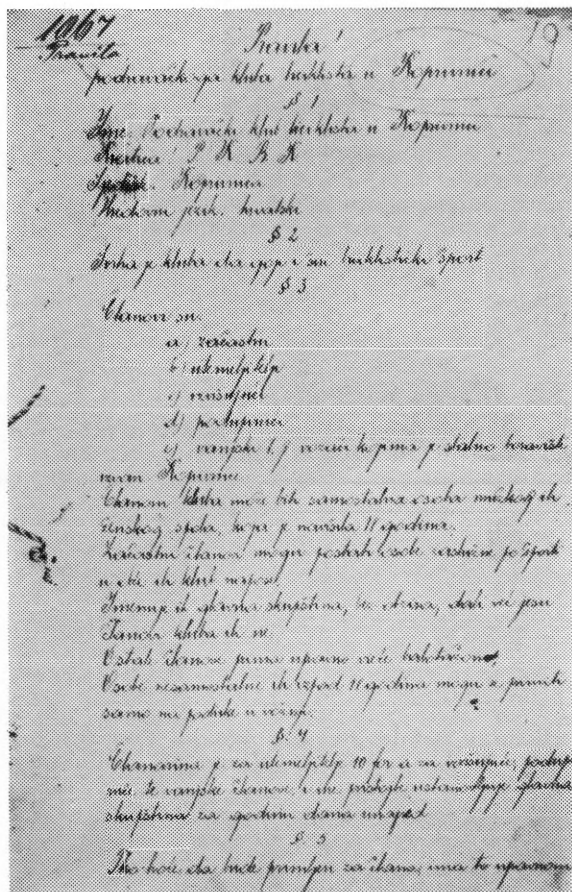 1067
Pravila
19
Pravila
podravačkoga kluba biciklista u Koprivnici
§ 1
Ime: Podravački klub biciklista u Koprivnici
Kratica: P K B K
Koprivnica
jezik: hrvatski
§ 2
Svrha je kluba da goji i širi biciklistički šport
§ 3
Članovi su:
a) začastni
b) utemeljitelji
c) izvršujući
d) podupirući
e) vanjski t. j. vozači kojima je stalno boravište
izvan Koprivnice
Članom kluba može biti samostalna osoba mužkog ili
ženskog spola, koja je navršila 18 godina.
Začastni članovi mogu postati osobe zaslužne po šport
u obće ili klub napose.
Imenuje ih glavna skupština, bez obzira, da li već jesu
članovi kluba ili ne.
Ostale članove prima upravno vieće balotažom,
Osobe nesamostalne ili izpod 18 godina mogu se primiti
samo na poduke u vožnji.
§. 4
Članarina je za utemeljitelje 10 for a za izvršujuće, podupi
ruće te vanjske članove i ine pristojbe ustanovljuje glavna
skupština za godinu dana unapred
§. 5
Tko hoće da bude primljen za člana, ima to upravnom